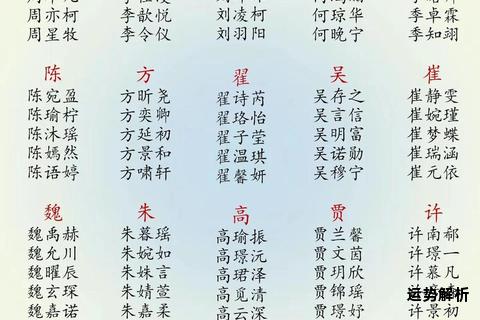 周亦柯 李歆悦 刘凌柯 何琼华 季卓霖
周星牧 李令仪 刘羽阳 何晚宁 季知翊
陈 方 翟 吴 崔
陈宛盈 方昕尧 翟诗芮 吴存之 崔静雯
陈瑜柠 方奕卿 翟珞怡 吴言信 崔婉瑾
陈沐瑶 方延初 翟子莹 吴明富 崔梦蝶
陈嫣然 方景和 翟温琪 吴诺勋 崔瑞涵
陈语婷 方啸轩 翟馨妍 吴穆宁 崔元依
魏 朱 高 贾 许
魏禹赫 朱暮瑶 高瑜振 贾兰馨 许南郗
魏允川 朱婉如 高璟沅 贾文茵 许璟一
魏曜辰 朱姝言 高珺泽 贾玥欣 许慕凡
魏玄琛 朱婧萱 高觅清 贾锦瑶
魏嘉诺 朱嘉柔 高云深 贾妤 许景初
运势解析